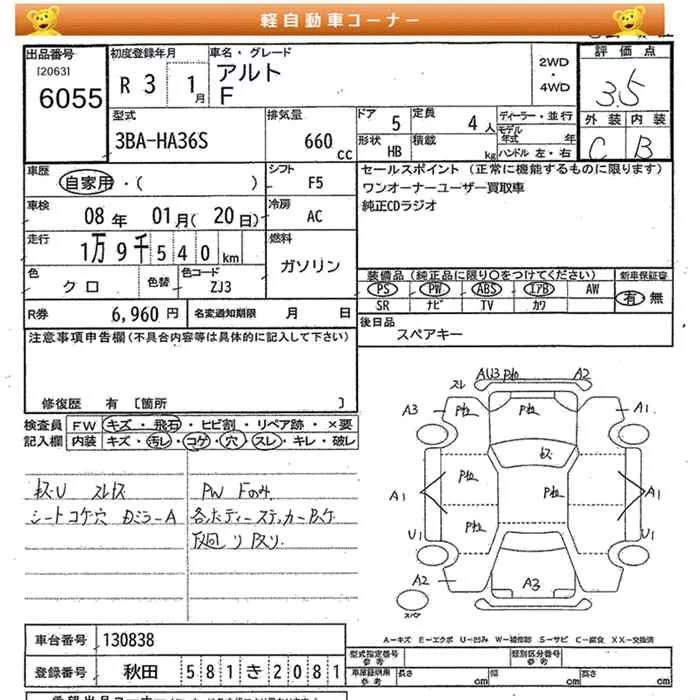 軽自動車コーナー
出品番号
[2063]
6055
初度登録年月
R 3 1月
車名・グレード
アルト
F
2WD
・
4WD
評価点
3.5
外装 内装
C B
型式
3BA-HA36S
排気量
660 cc
ドア 5
定員 4 人
形状 HB
積載 kg
ディーラー・並行
モデル年式 年
ハンドル 左・右
車歴
自家用・( )
シフト F5
車検
08年 01月( 20日)
冷房 AC
走行
1万9千540 km
燃料
ガソリン
色
クロ
色替
色コード
ZJ3
セールスポイント (正常に機能するものに限ります)
ワンオーナーユーザー買取車
純正CDラジオ
装備品(純正品に限り〇をつけてください)
新車保証書
PS PW ABS エアB AW
SR ナビ TV カワ
有・無
R券 6,960 円
名変通知期限 月 日
後日品
スペアキー
注意事項申告欄(不具合内容等は具体的に記入して下さい)
修復歴 有 [箇所 ]
検査員
記入欄
FW キズ・飛石・ヒビ割・リペア跡・×要
内装 キズ・汚レ・コゲ・穴・スレ・キレ・破レ
シートコゲ穴
PW Fのみ
スレ
AU3
A2
A3
A1
A1
A1
U1
U1
A2
A3
スペア
A-キズ E-エクボ U-凹み W-補修跡 S-サビ C-腐食 XX-交換済
車台番号 130838
登録番号 秋田 581き2081
型式指定番号
参考
類別区分番号
参考
車庫証明用
参考
長さ cm
幅 cm
高さ cm